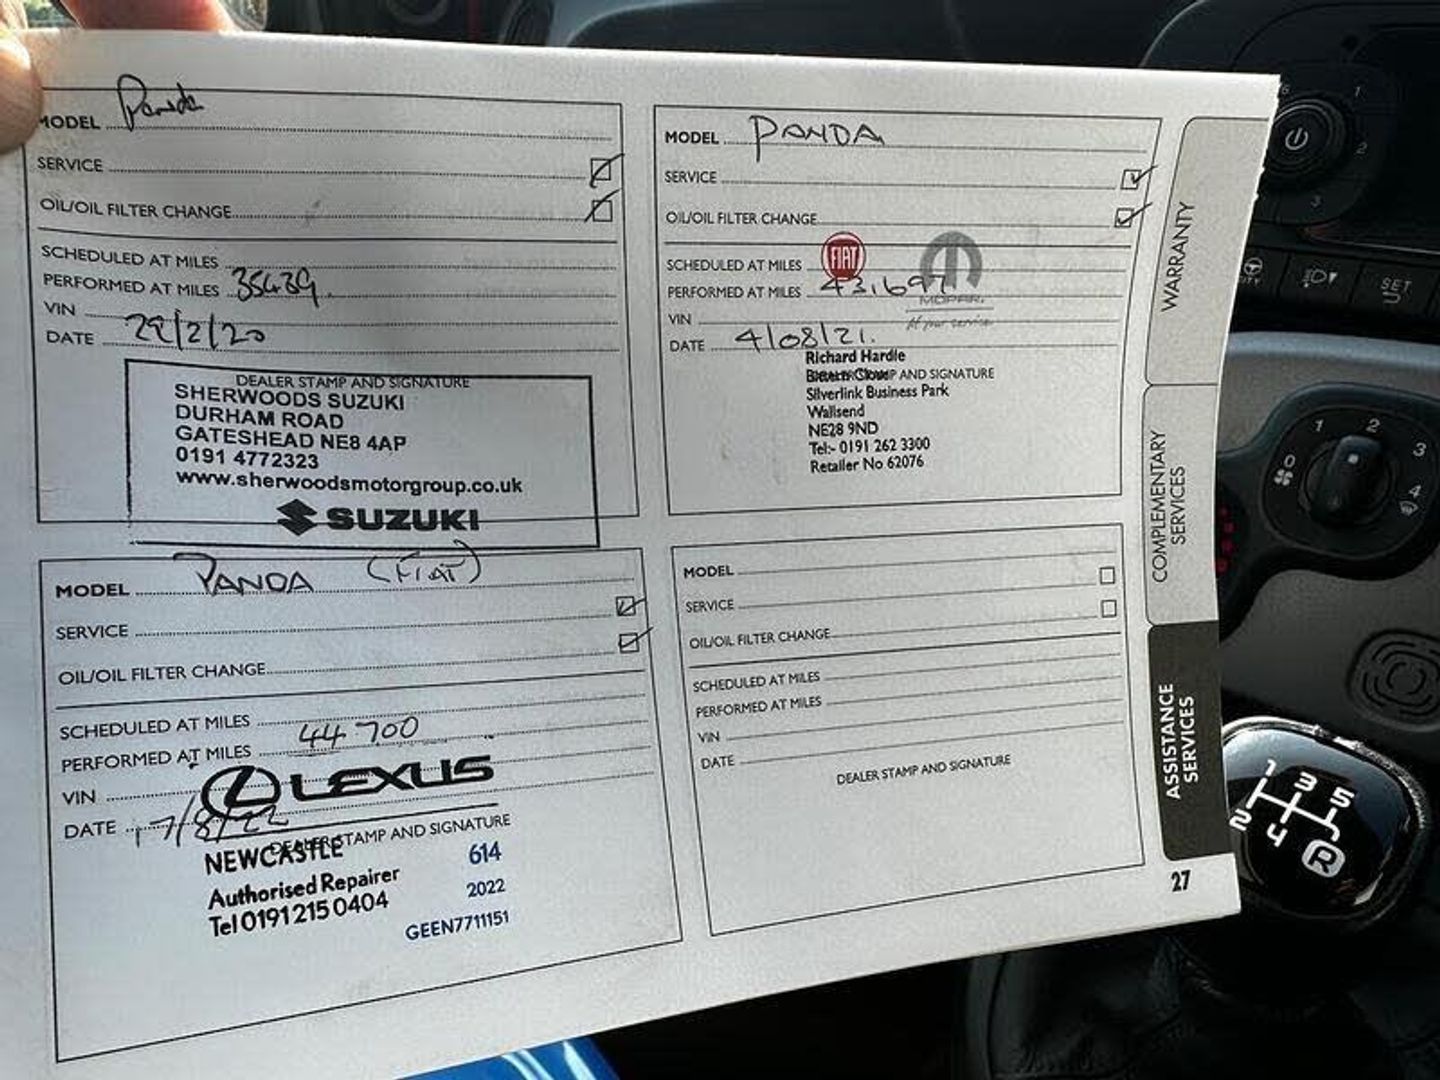 MODEL Panda
SERVICE
OIL/OIL FILTER CHANGE
SCHEDULED AT MILES
PERFORMED AT MILES 35439.
VIN
DATE 29/2/20
DEALER STAMP AND SIGNATURE
SHERWOODS SUZUKI
DURHAM ROAD
GATESHEAD NE8 4AP
0191 4772323
www.sherwoodsmotorgroup.co.uk
SUZUKI
MODEL PANDA
SERVICE
OIL/OIL FILTER CHANGE
FIAT
SCHEDULED AT MILES
PERFORMED AT MILES 43,697
MOPAR.
VIN
At your service
DATE 4/08/21.
Richard Hardie
DEALER STAMP AND SIGNATURE
Silverlink Business Park
Wallsend
NE28 9ND
Tel:- 0191 262 3300
Retailer No 62076
MODEL PANDA (FIAT)
SERVICE
OIL/OIL FILTER CHANGE
SCHEDULED AT MILES
PERFORMED AT MILES 44 700
VIN
LEXUS
DATE 17/8/22
DEALER STAMP AND SIGNATURE
NEWCASTLE
614
Authorised Repairer
2022
Tel 0191 215 0404
GEEN7711151
MODEL
SERVICE
OIL/OIL FILTER CHANGE
SCHEDULED AT MILES
PERFORMED AT MILES
VIN
DATE
DEALER STAMP AND SIGNATURE
WARRANTY
COMPLEMENTARY
SERVICES
ASSISTANCE
SERVICES
27
1
2
3
SET
0
1
2
3
4
1 3 5
2 4 R